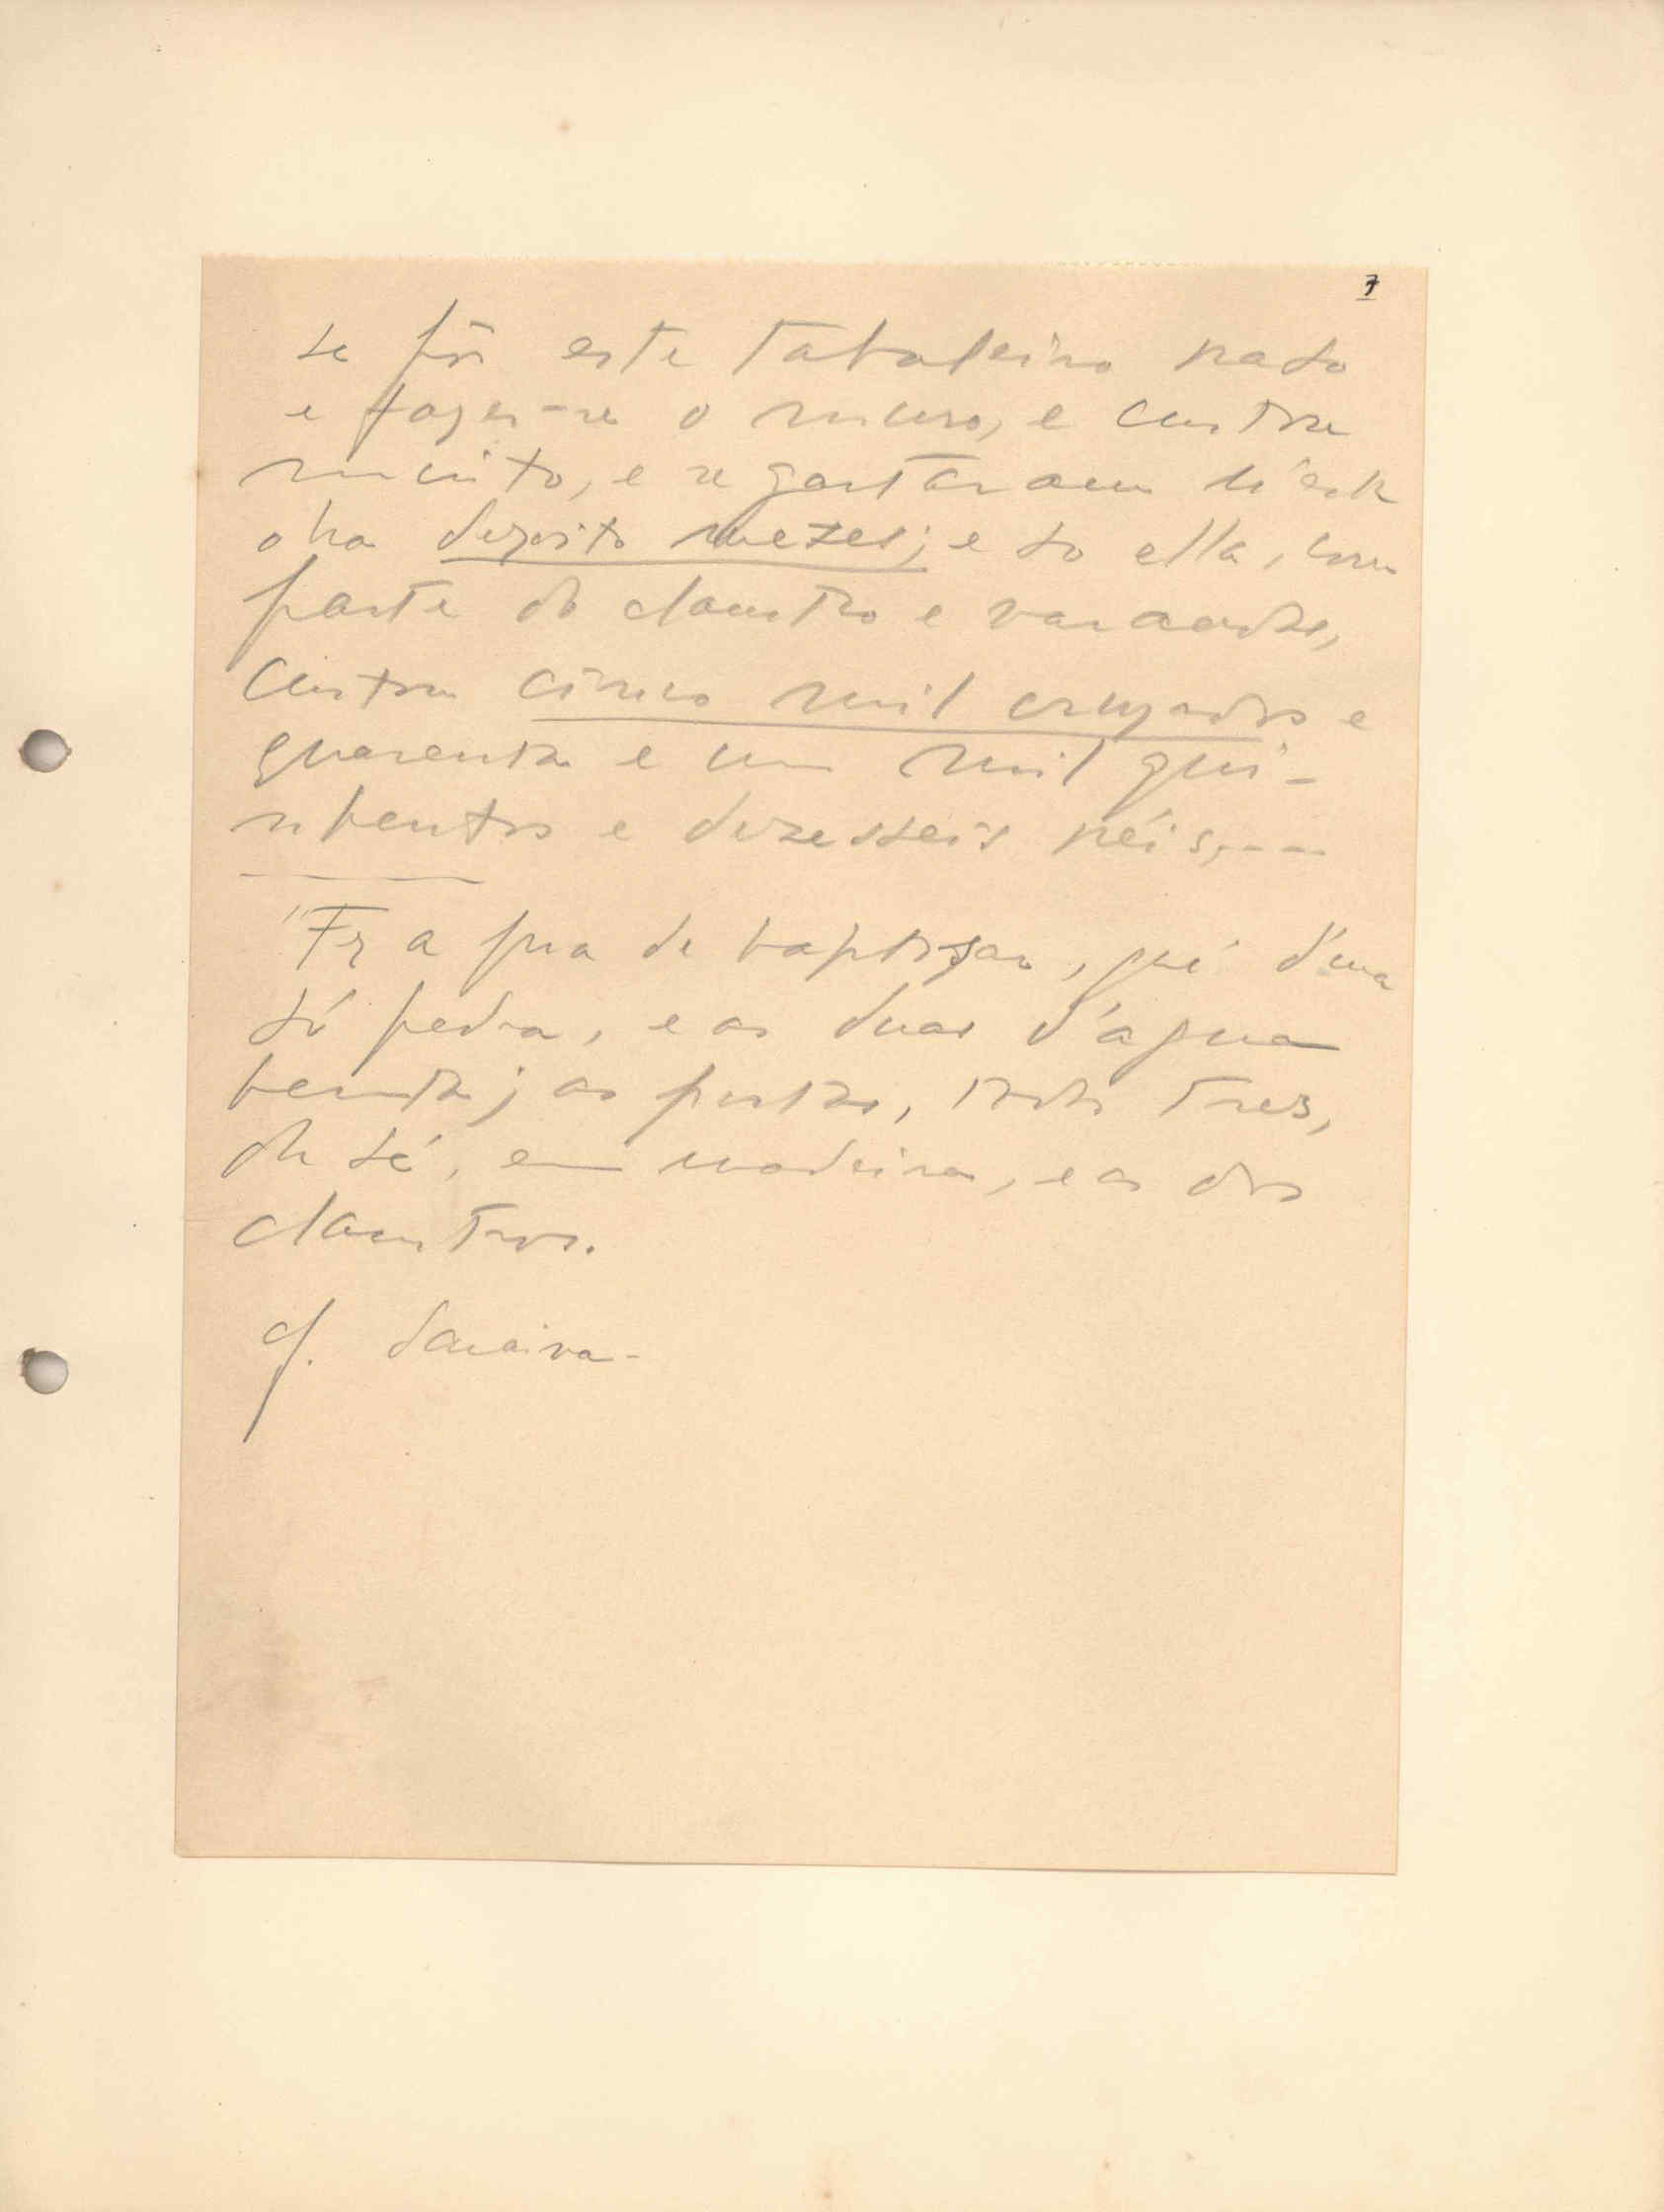 7
se pôr este taboleiro raso
e fazer-se o muro, e custou
muito, e se gastaram n'esta
obra dezoito mezes; e so ella, com
parte do claustro e varandas,
custou cinco mil cruzados e
quarenta e um mil qui-
nhentos e dezesseis réis,---
"Fez a pia de baptizar, que é d'uma
só pedra, e as duas d'agua
benta; as portas, todas tres,
da sé, em madeira, e as dos
claustros.
J. Saraiva-